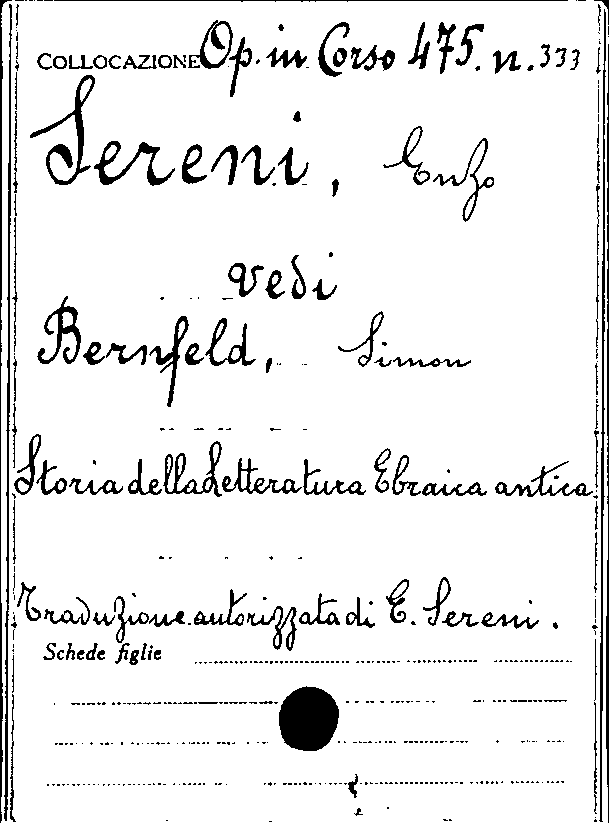 COLLOCAZIONE Op. in Corso 475. n. 333
Sereni, Enzo
vedi
Bernfeld, Simon
Storia della Letteratura Ebraica antica
Traduzione autorizzata di E. Sereni.
Schede figlie